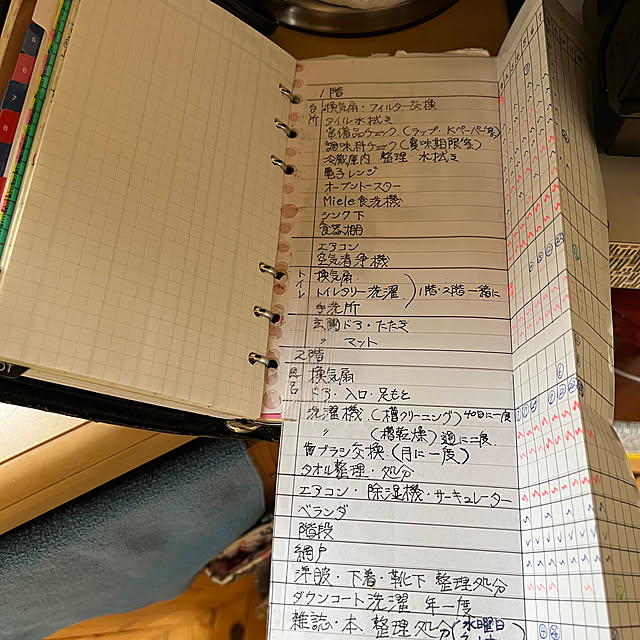 1階
台所 換気扇・フィルター交換
タイル水拭き
常備品チェック(ラップ・Kペーパー等)
調味料チェック(賞味期限等)
冷蔵庫内 整理・水拭き
電子レンジ
オーブントースター
Miele食洗機
シンク下
食器棚
エアコン
空気清浄機
トイレ 換気扇
トイレタリー洗濯 1階・2階一緒に
手洗所
玄関ドア・たたき
〃 マット
2階
換気扇
ドア・入口・足もと
洗濯機(槽クリーニング)40日に一度
〃 (槽乾燥)週に二度
歯ブラシ交換(月に一度)
タオル整理・処分
エアコン・除湿機・サーキュレーター
ベランダ
階段
網戸
洋服・下着・靴下 整理処分
ダウンコート洗濯 年一度
雑誌・本 整理処分(水曜日
5
6
7
8